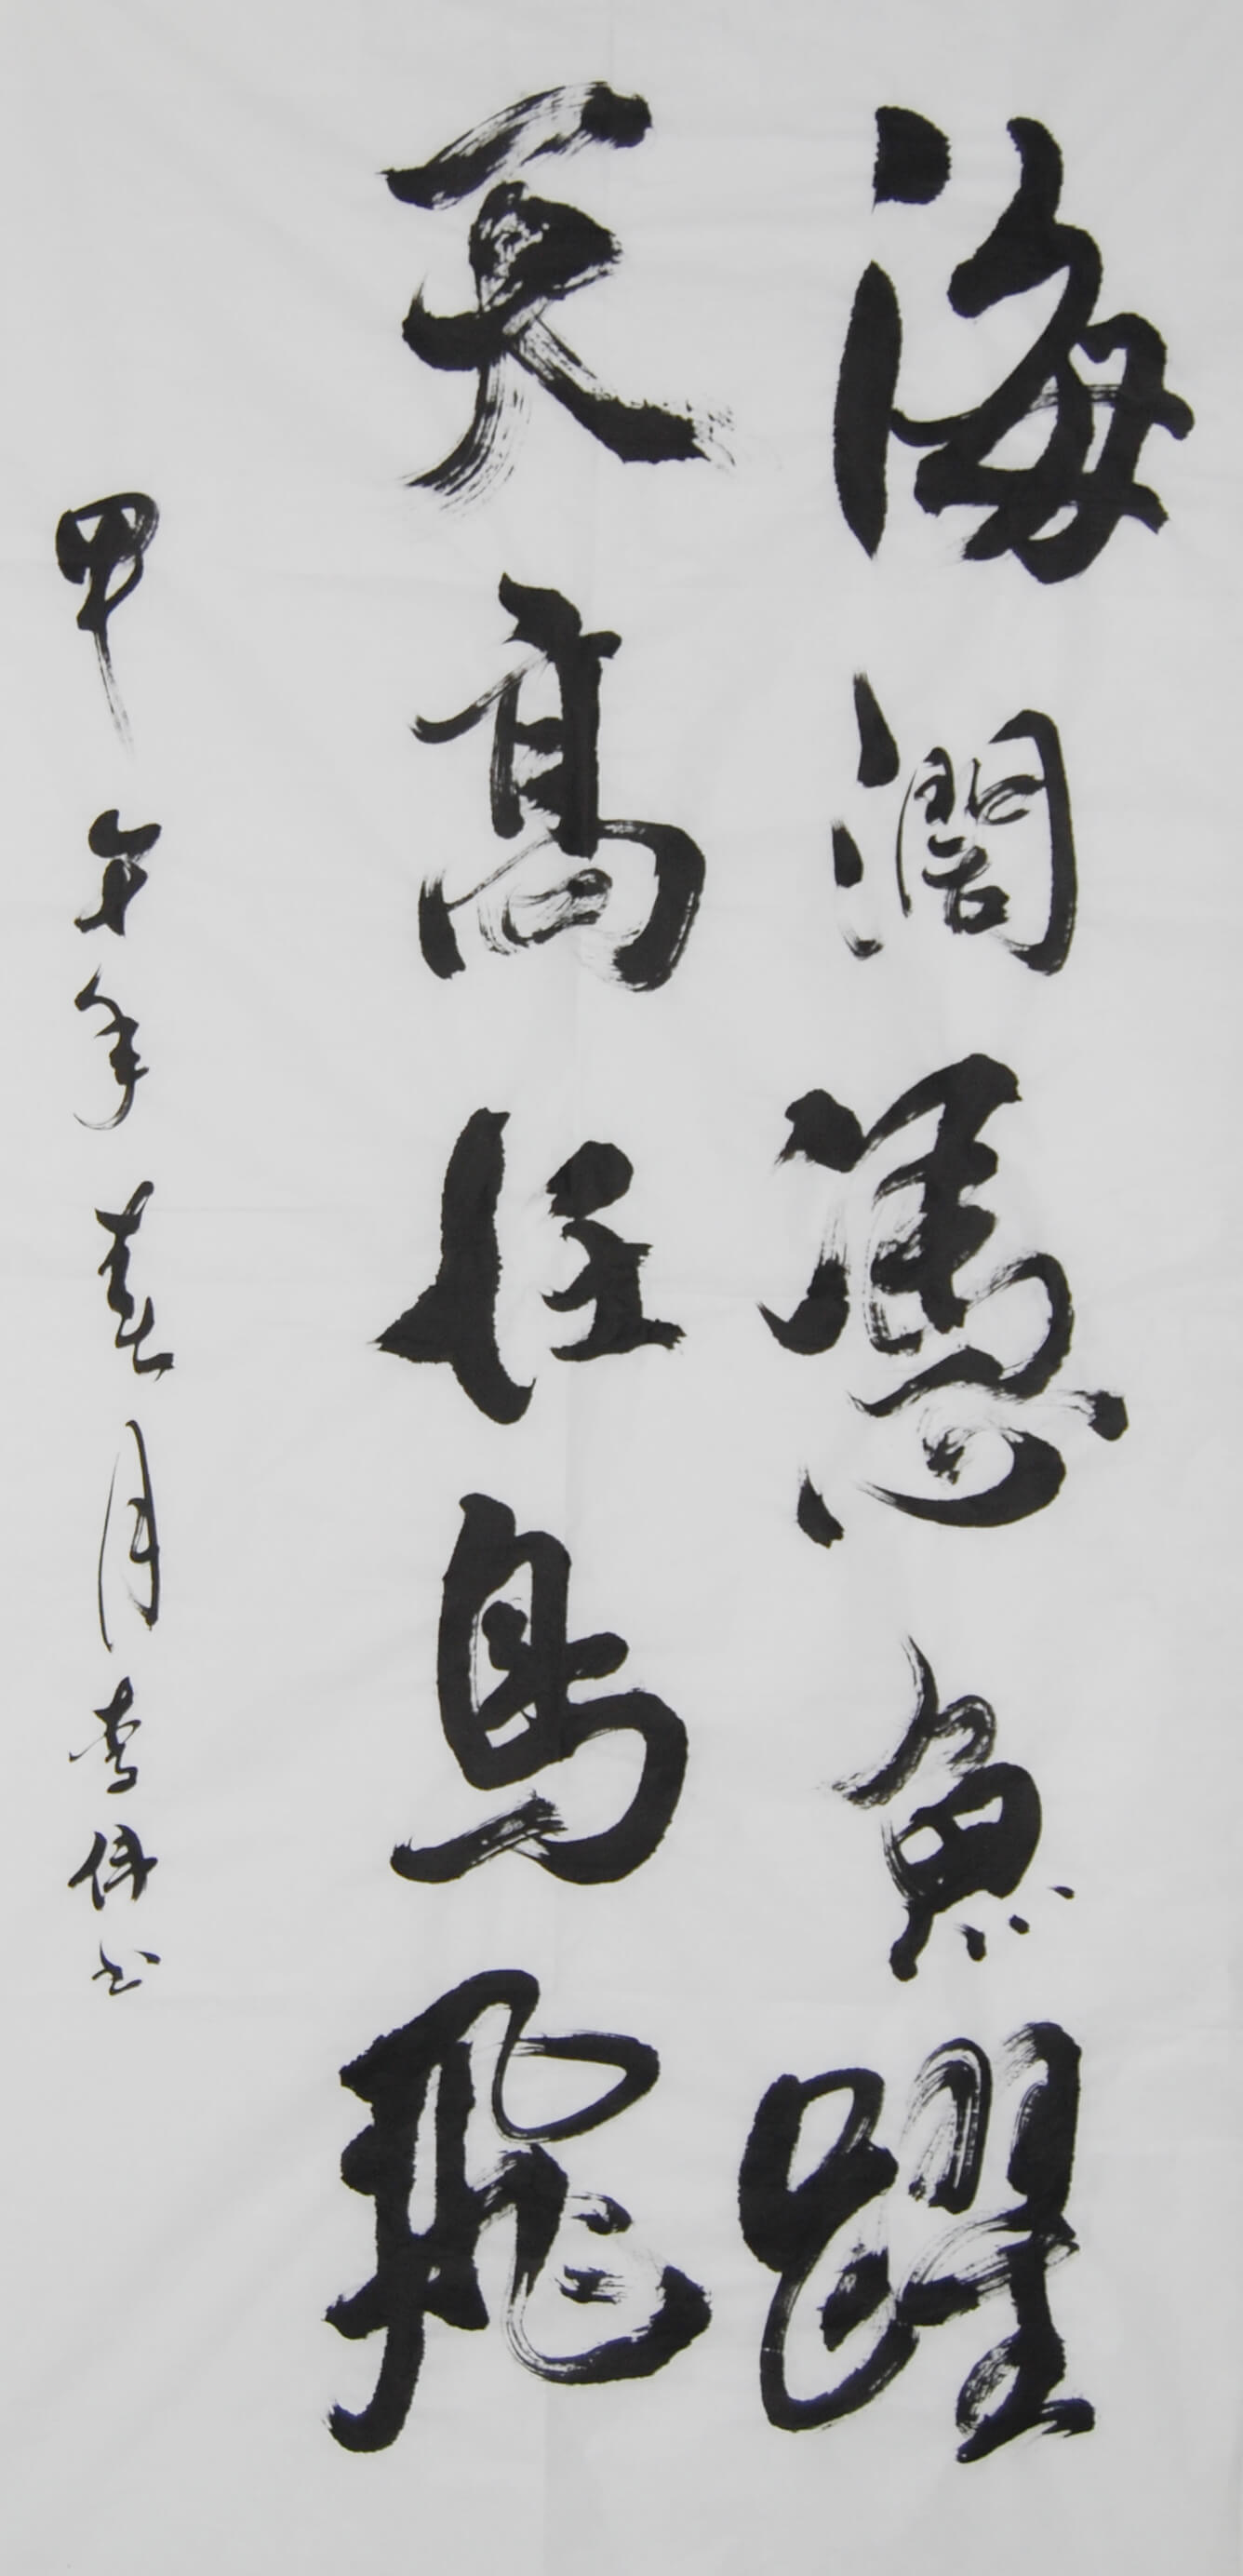 海濶憑魚躍
天髙任鳥飛
甲午年春月李偉书